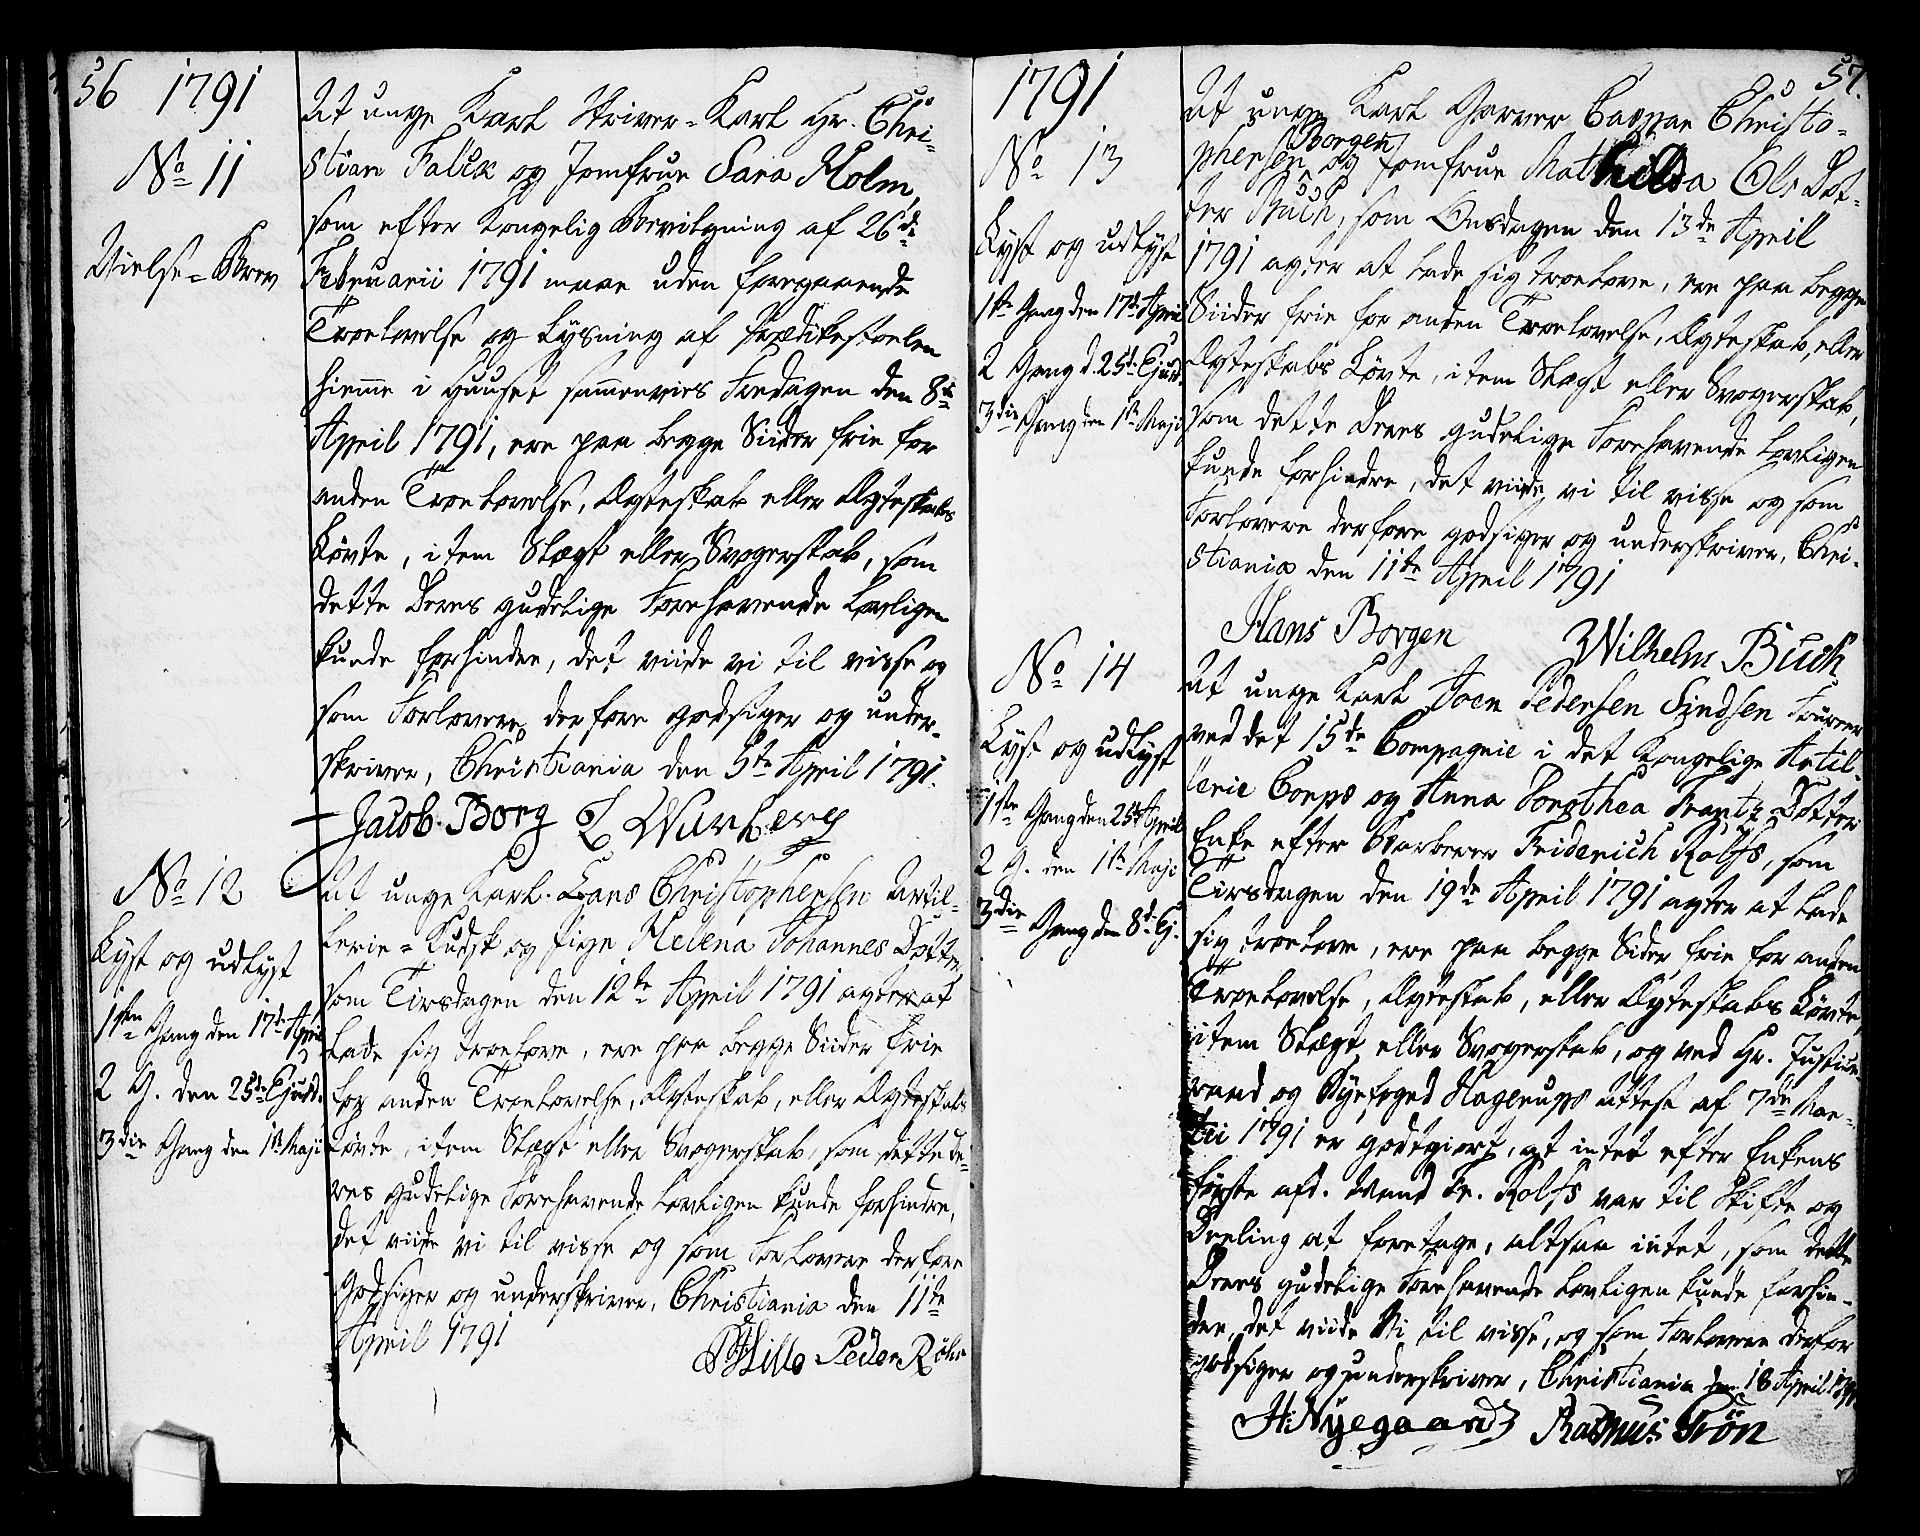 56 1791
No 11
Vielse-Brev
At unge Karl Skriver-Karl Hr. Chri-
stian Falck og Jomfrue Sara Holm,
som efter Kongelig Bevilgning af 26de
Februarii 1791 maae uden foregaaende
Troelovelse og Lysning af Prædikestoelen
hieme i Huuset samenvies Fredagen den 8de
April 1791, ere paa begge Siider frie for
anden Troelovelse, Ægteskab eller Ægteskabs
Løvte, item Slægt eller Svogerskab, som
dette Deres gudelige Forehavende lovligen
kunde forhindre, det viide vi til visse og
som Forlovere derfore godsiger og under-
skriver, Christiania den 5te April 1791.
Jacob Borg
No 12
Lyst og udlyst
1ste Gang den 17de April
2 G. den 25de Ejusd.
3die Gang den 1te Maji
At unge Karl Hans Christophersen Artil-
lerie-Kudsk og Pige Helena Johannes Dotter
som Tirsdagen den 12te April 1791 agter at
lade sig troelove, ere paa begge Siider frie
for anden Troelovelse, Ægteskab, eller Ægteskabs
Løvte, item Slægt eller Svogerskab, som dette De-
res gudelige Forehavende lovligen kunde forhindre,
det viide vi til visse og som Forlovere derfore
godsiger og underskriver, Christiania den 11te
April 1791
Hille Peder Röhr
1791 57.
No 13
Lyst og udlyst
1ste Gang den 17de April
2 Gang d. 25de Ejusd.
3die Gang den 1te Maji
At unge Karl Garver Caspar Christo-
phersen Borgen og Jomfrue Mathilda Ols Dot-
ter Buch, som Onsdagen den 13de April
1791 agter at lade sig troelove, ere paa begge
Siider frie for anden Troelovelse, Ægteskab, eller
Ægteskabs Løvte, item Slægt eller Svogerskab,
som dette Deres gudelige Forehavende lovligen
kunde forhindre, det viide vi til visse og som
Forlovere derfore godsiger og underskriver, Chri-
stiania den 11te April 1791
Hans Borgen Wilhelm Buch
No 14
Lyst og udlyst
1ste Gang den 25de April
2 G. den 1te Maji
3die Gang den 8de Ej.
At unge Karl Joen Pedersen Lindsen Fourer
ved det 15de Compagnie i det Kongelige Artil-
lerie Corps og Anna Dorothea Frantz Dotter
Enke efter Barberer Friderich Rolfs, som
Tirsdagen den 19de April 1791 agter at lade
sig troelove, ere paa begge Sider frie for anden
Troelovelse, Ægteskab, eller Ægteskabs Løvte,
item Slægt eller Svogerskab, og ved Hr. Justice-
raad og Byefoged Hagerups Attest af 7de Mar-
tii 1791 er godtgiort, at intet efter Enkens
første afd. Mand Fr. Rolfs var til Skifte og
Deeling at foretage, altsaa intet, som dette
Deres gudelige Forehavende lovligen kunde forhin-
dre, det viide Vi til visse, og som Forlovere derfor
godsiger og underskriver, Christiania den 18 April 1791
H: Nyegaard Rasmus Trön